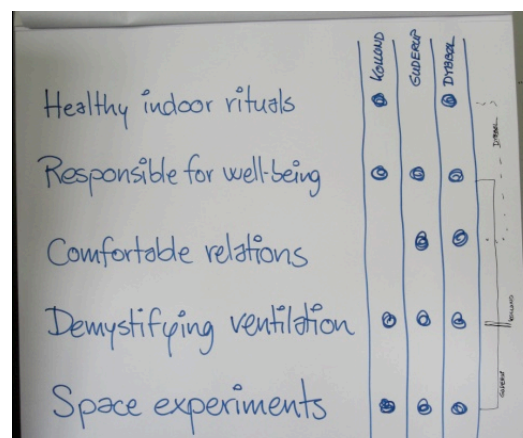 KOLLUND GUDERUP DYBBØL
Healthy indoor rituals
Responsible for well-being
Comfortable relations
Demystifying ventilation
Space experiments
DYBBØL
KOLLUND
GUDERUP